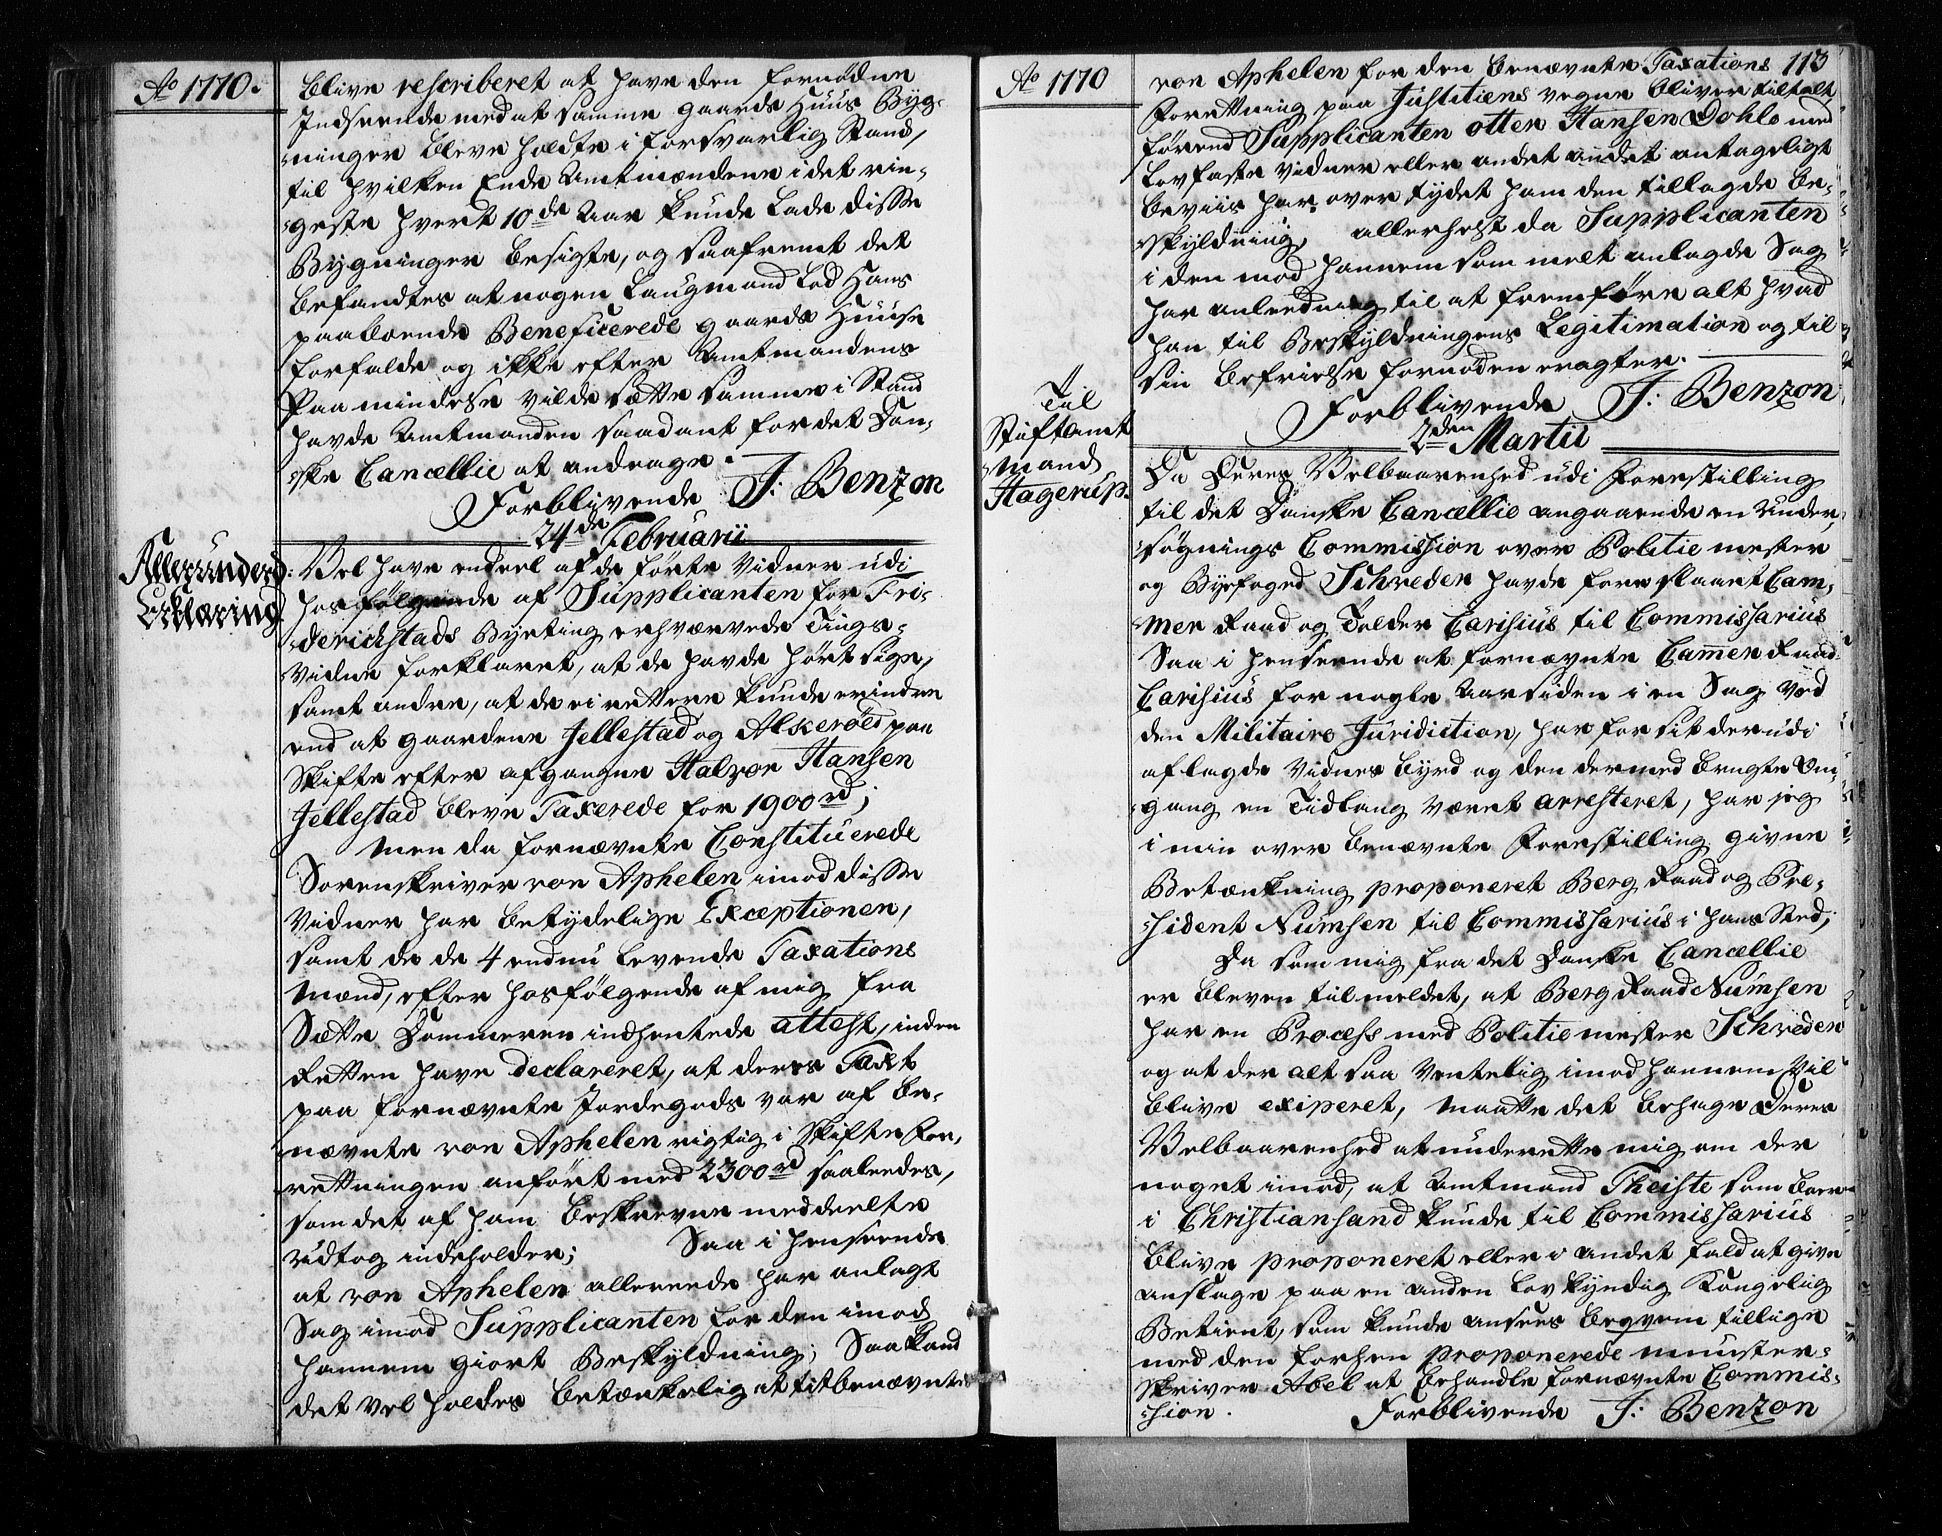 Ao 1770.
blive rescriberet at have den fornødne
Indseende med at samme gaards Huus Byg-
ninger bleve holdte i forsvarlig Stand,
til hvilken Ende Amtmændene i det rin-
geste hvert 10de Aar kunde lade disse
Bygninger besigte, og saafremt det
befandtes at nogen Laugmand lod Hans
paaboende Beneficerede gaards Huuse
forfalde og ikke efter Amtmandens
Paamindelse vilde sætte samme i Stand
havde Amtmanden saadant for det Dan-
ske Cancellie at andrage.
Forblivende J: Benzon
24de Februarii
Allerunderd:
Erklæring
Vel have endeel af de førte Vidner udi
hosfølgende af Supplicanten for Fri-
derichstads Byeting erhvervede Tings-
vidne forklaret, at de havde hørt sige,
samt andre, at de ei rettere kunde erindre
end at gaardene Jellestad og Alkerøed paa
Skifte efter afgangne Halvor Hansen
Jellestad bleve Taxerede for 1900 rd;
Men da fornævnte Constituerede
Sorenskriver von Aphelen imod disse
Vidner har betydelige Exceptioner,
samt de de 4 endnu levende Taxations
Mænd, efter hosfølgende af mig fra
Sætte Dommeren indhentede attest, inden
Retten have declareret, at deres Taxt
paa fornævnte Jordegods var af be-
nævnte von Aphelen rigtig i Skifte For-
retningen anført med 2300 rd saaledes,
som det af ham beskrevne meddeelte
udtog indeholder; Saa i henseende
at von Aphelen allereede har anlagt
Sag imod Supplicanten for den imod
hannem giort Beskyldning; Saa kand
det vel holdes betænkelig at titbenævnte
Ao 1770
113
von Aphelen for den benævnte Taxations
Forretning paa Justitiens vegne bliver tiltalt,
førend Supplicanten otter Hansen Dohle med
Lovfaste Vidner eller andet andet antageligt
Beviis har overtydet ham den tillagde be-
skyldning, allerhelst da Supplicanten
i den mod hannem som melt anlagde Sag
har anleedning til at fremføre alt hvad
han til Beskyldningens Legitimation og til
sin befrielse fornøden eragter.
Forblivende J: Benzon
2den Martii
Til
Stiftamt
mand
Hagerup.
Da Deres Velbaarenhed udi Forestilling
til det Danske Cancellie angaaende en Under-
søgnings Commission over Politiemester
og Byefoged Schreder havde foreslaaet Cam-
mer Raad og Tolder Carisius til Commissarius
Saa i henseende at fornævnte Cammer Raad
Carisius for nogle Aar siden i en Sag ved
den Militaire Juridiction, har for sit derudi
aflagde Vidnes byrd og den dermed brugte Om-
gang en Tidlang været arresteret, har jeg
i min over benævnte Forestilling givne
Betænkning proponeret Berg Raad og Pre-
sident Numsen til Commissarius i hans Sted;
Da som mig fra det Danske Cancellie
er bleven tilmeldet, at Berg Raad Numsen
har en Process med Politiemester Schreder
og at der altsaa ventelig imod hannem vil
blive exiperet, maatte det behage Deres
Velbaarenhed at underrette mig om der
noget imod, at Amtmand Theiste som boer
i Christiansand kunde til Commissarius
blive proponeret eller i andet fald at give
anslage paa en anden lovkyndig Kongelig
Betient, som kunde ansees beqvem tillige
med den forhen proponerede munster-
skriver Abel at behandle fornævnte Commis-
sion. Forblivende J: Benzon